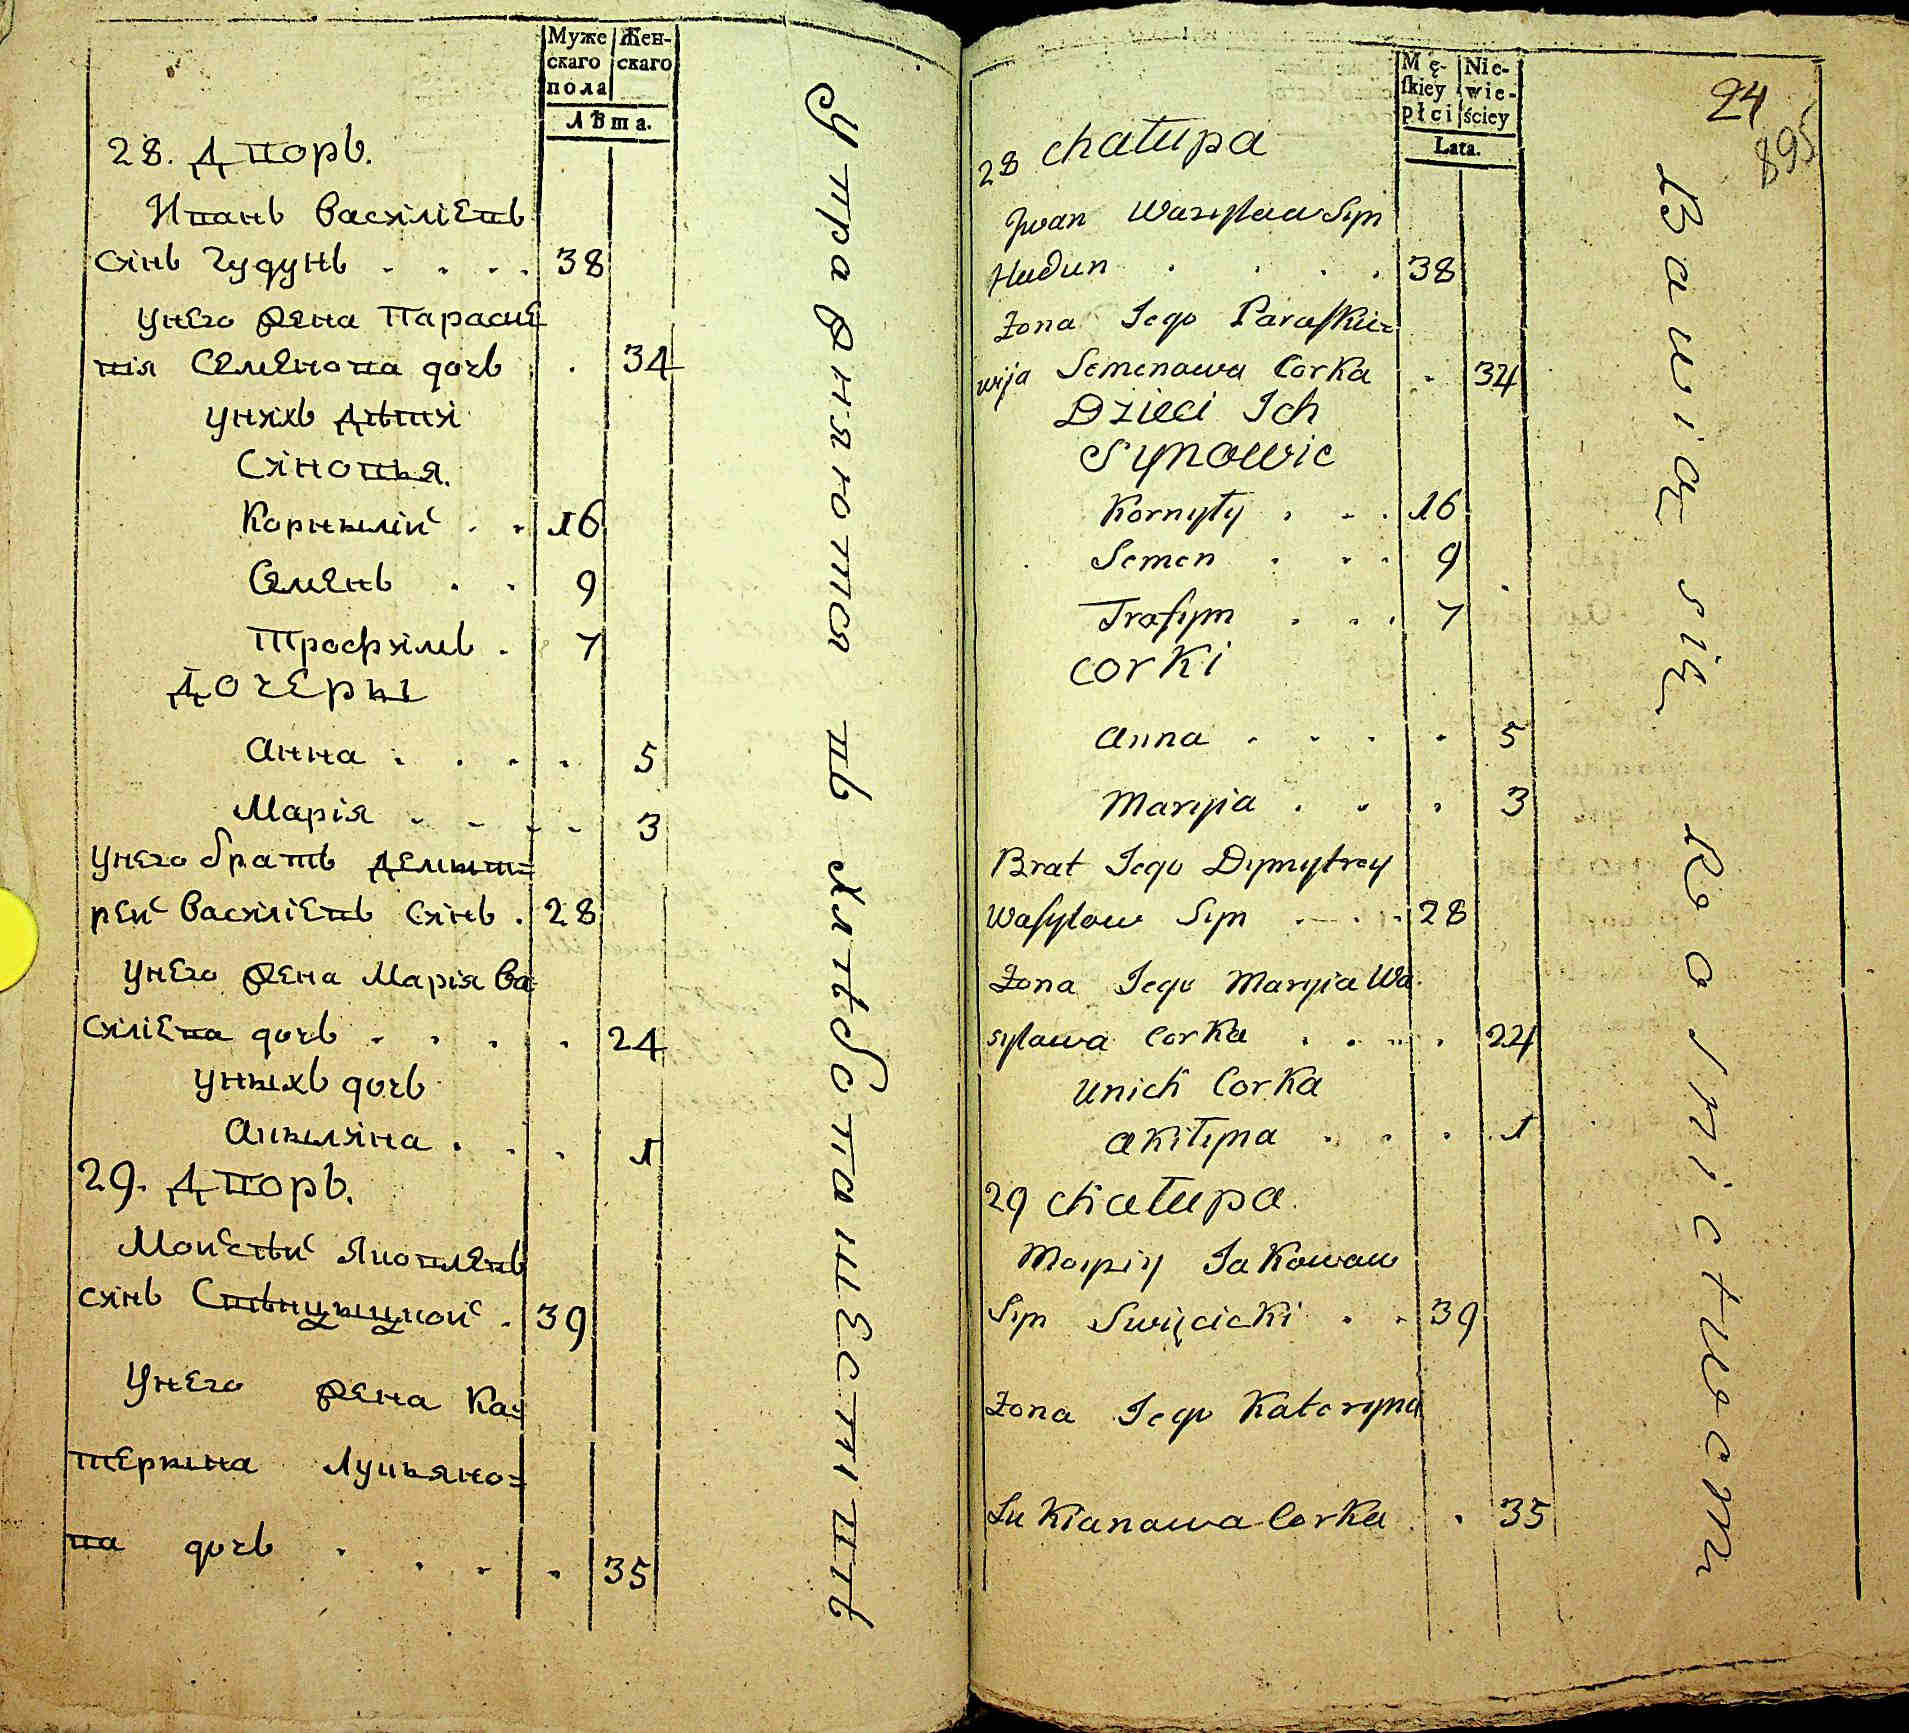 Муже Жен-
скаго скаго
пола
Лѣта.
28. Дворъ.
Иванъ Василіевъ
синъ Гудунъ . . . . 38
Унего жена Параске
вія Семенова дочъ . 34
унихъ дѣти
Синовья.
Корнылій . . 16
Семенъ . . 9
Трофимъ . 7
Дочеры
Анна . . . . 5
Марія . . . . 3
Унего братъ Демыт=
рей Василіевъ синъ . 28
Унего жена Марія Ва
силіева дочъ . . . . 24
Уныхъ дочъ
Акылина . . . 1
29. Дворъ.
Мойсѣй Яковлевъ
синъ Свѣнцыцкой . 39
Унего жена Ка=
терына Лукьяно=
ва дочъ . . . . 35
Упражняются въ Хлѣбопашествѣ
Mę- Nie-
ſkiey wie-
płci ściey
Lata.
24
895
28 chałupa
Jwan Wasyław Syn
Hudun . . . . 38
Żona Jego Paraſkie=
wija Semenawa Corka . 34
Dzieci Jch
Synowie
Kornyły . . . 16
Semen . . . 9
Trafym . . . 7
corki
Anna . . . . 5
Maryia . . . 3
Brat Jego Dymytrey
Waſyław Syn . . . 28
Żona Jego Maryia Wa
syława Corka . . . . 24
unich Corka
Akiłyna . . . 1
29 chałupa
Moysiy Jakowaw
Syn Swięcicki . . 39
Żona Jego Kateryna
Łukianawa Corka . . 35
Bawią się Rolnictwem